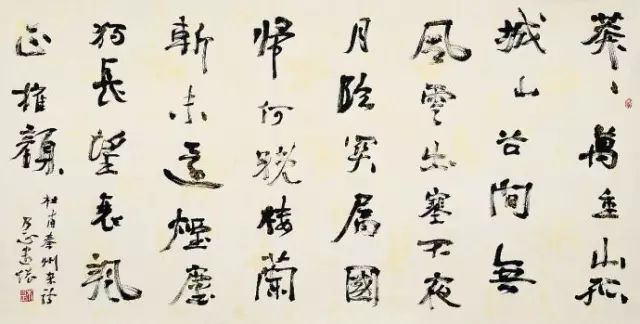 莽〻萬重山孤
城山谷間無
風雲出塞不夜
月臨關屬國
歸何晚樓蘭
斬未還煙塵
獨長望衰颯
正摧顏
杜甫秦州雜詩